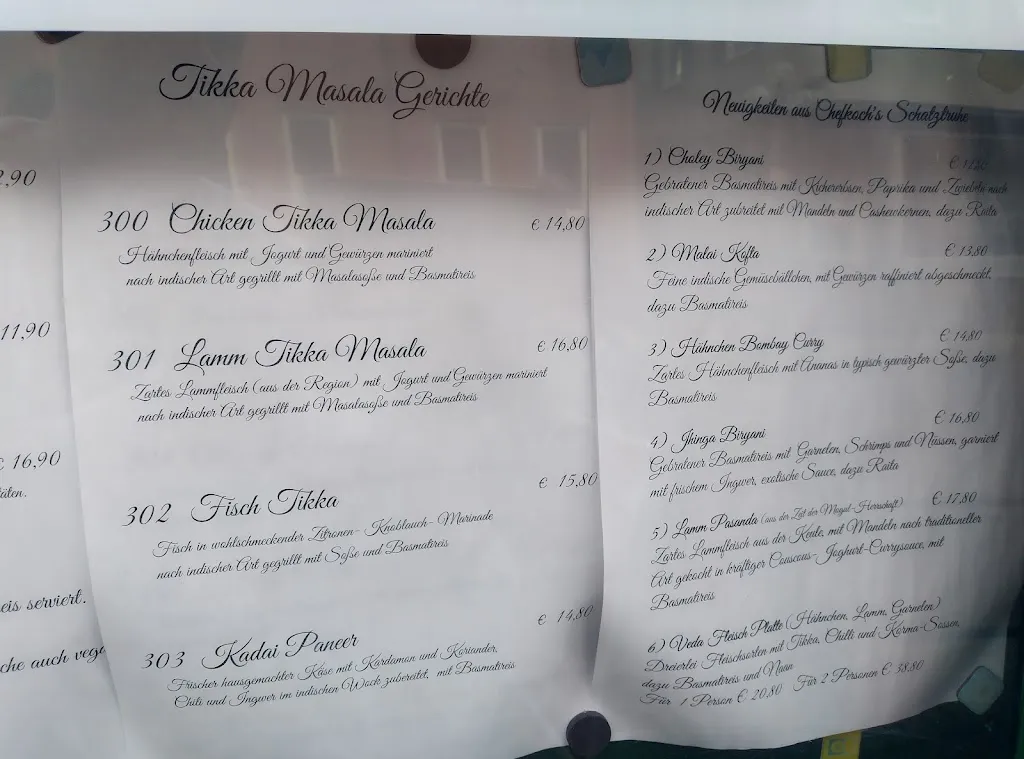 2,90
11,90
€ 16,90
äten.
eis serviert.
che auch vega
Tikka Masala Gerichte
300 Chicken Tikka Masala € 14,80
Hähnchenfleisch mit Jogurt und Gewürzen mariniert
nach indischer Art gegrillt mit Masalasoße und Basmatireis
301 Lamm Tikka Masala € 16,80
Zartes Lammfleisch (aus der Region) mit Jogurt und Gewürzen mariniert
nach indischer Art gegrillt mit Masalasoße und Basmatireis
302 Fisch Tikka € 15,80
Fisch in wohlschmeckender Zitronen- Knoblauch- Marinade
nach indischer Art gegrillt mit Soße und Basmatireis
303 Kadai Paneer € 14,80
Frischer hausgemachter Käse mit Kardamon und Koriander,
Chili und Ingwer im indischen Wock zubereitet, mit Basmatireis
Neuigkeiten aus Chefkoch's Schatztruhe
1) Choley Biryani €
Gebratener Basmatireis mit Kichererbsen, Paprika und Zwiebeln nach
indischer Art zubreitet mit Mandeln und Cashewkernen, dazu Raita
2) Malai Kofta € 13,80
Feine indische Gemüsebällchen, mit Gewürzen raffiniert abgeschmeckt,
dazu Basmatireis
3) Hähnchen Bombay Curry € 14,80
Zartes Hähnchenfleisch mit Ananas in typisch gewürzter Soße, dazu
Basmatireis
4) Jhinga Biryani € 16,80
Gebratener Basmatireis mit Garnelen, Schrimps und Nüssen, garniert
mit frischem Ingwer, exotische Sauce, dazu Raita
5) Lamm Pasanda (aus der Zeit der Mogul-Herrschaft) € 17,80
Zartes Lammfleisch aus der Keule, mit Mandeln nach traditioneller
Art gekocht in kräftiger Couscous- Joghurt-Currysauce, mit
Basmatireis
6) Veda Fleisch Platte (Hähnchen, Lamm, Garnelen)
Dreierlei Fleischsorten mit Tikka, Chilli und Korma-Sossen,
dazu Basmatireis und Naan
Für 1 Person € 20,80 Für 2 Personen € 38,80